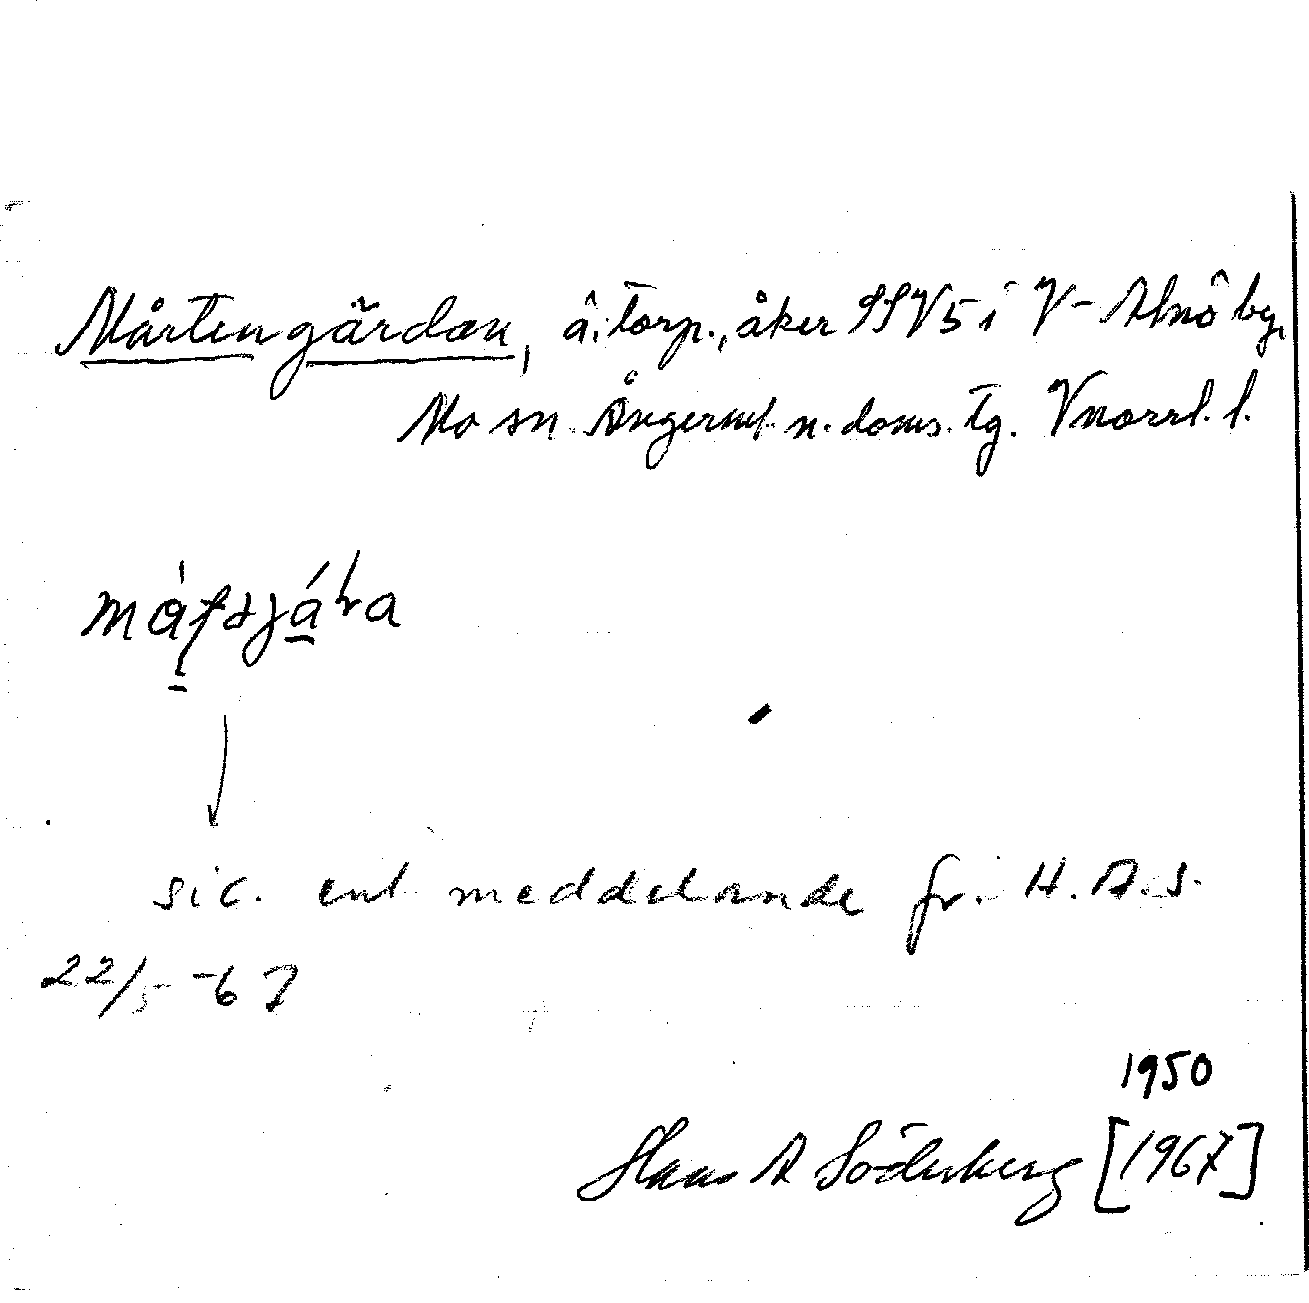 Mårtengärdan, â. torp., åker SSV5 i V-Alnö by,
Mo sn Ångerml. n. doms. tg. Vnorrl. l.
sic. enl meddelande fr. H.A.S.
22/5 -67
1950
Hans A Söderberg [1967]